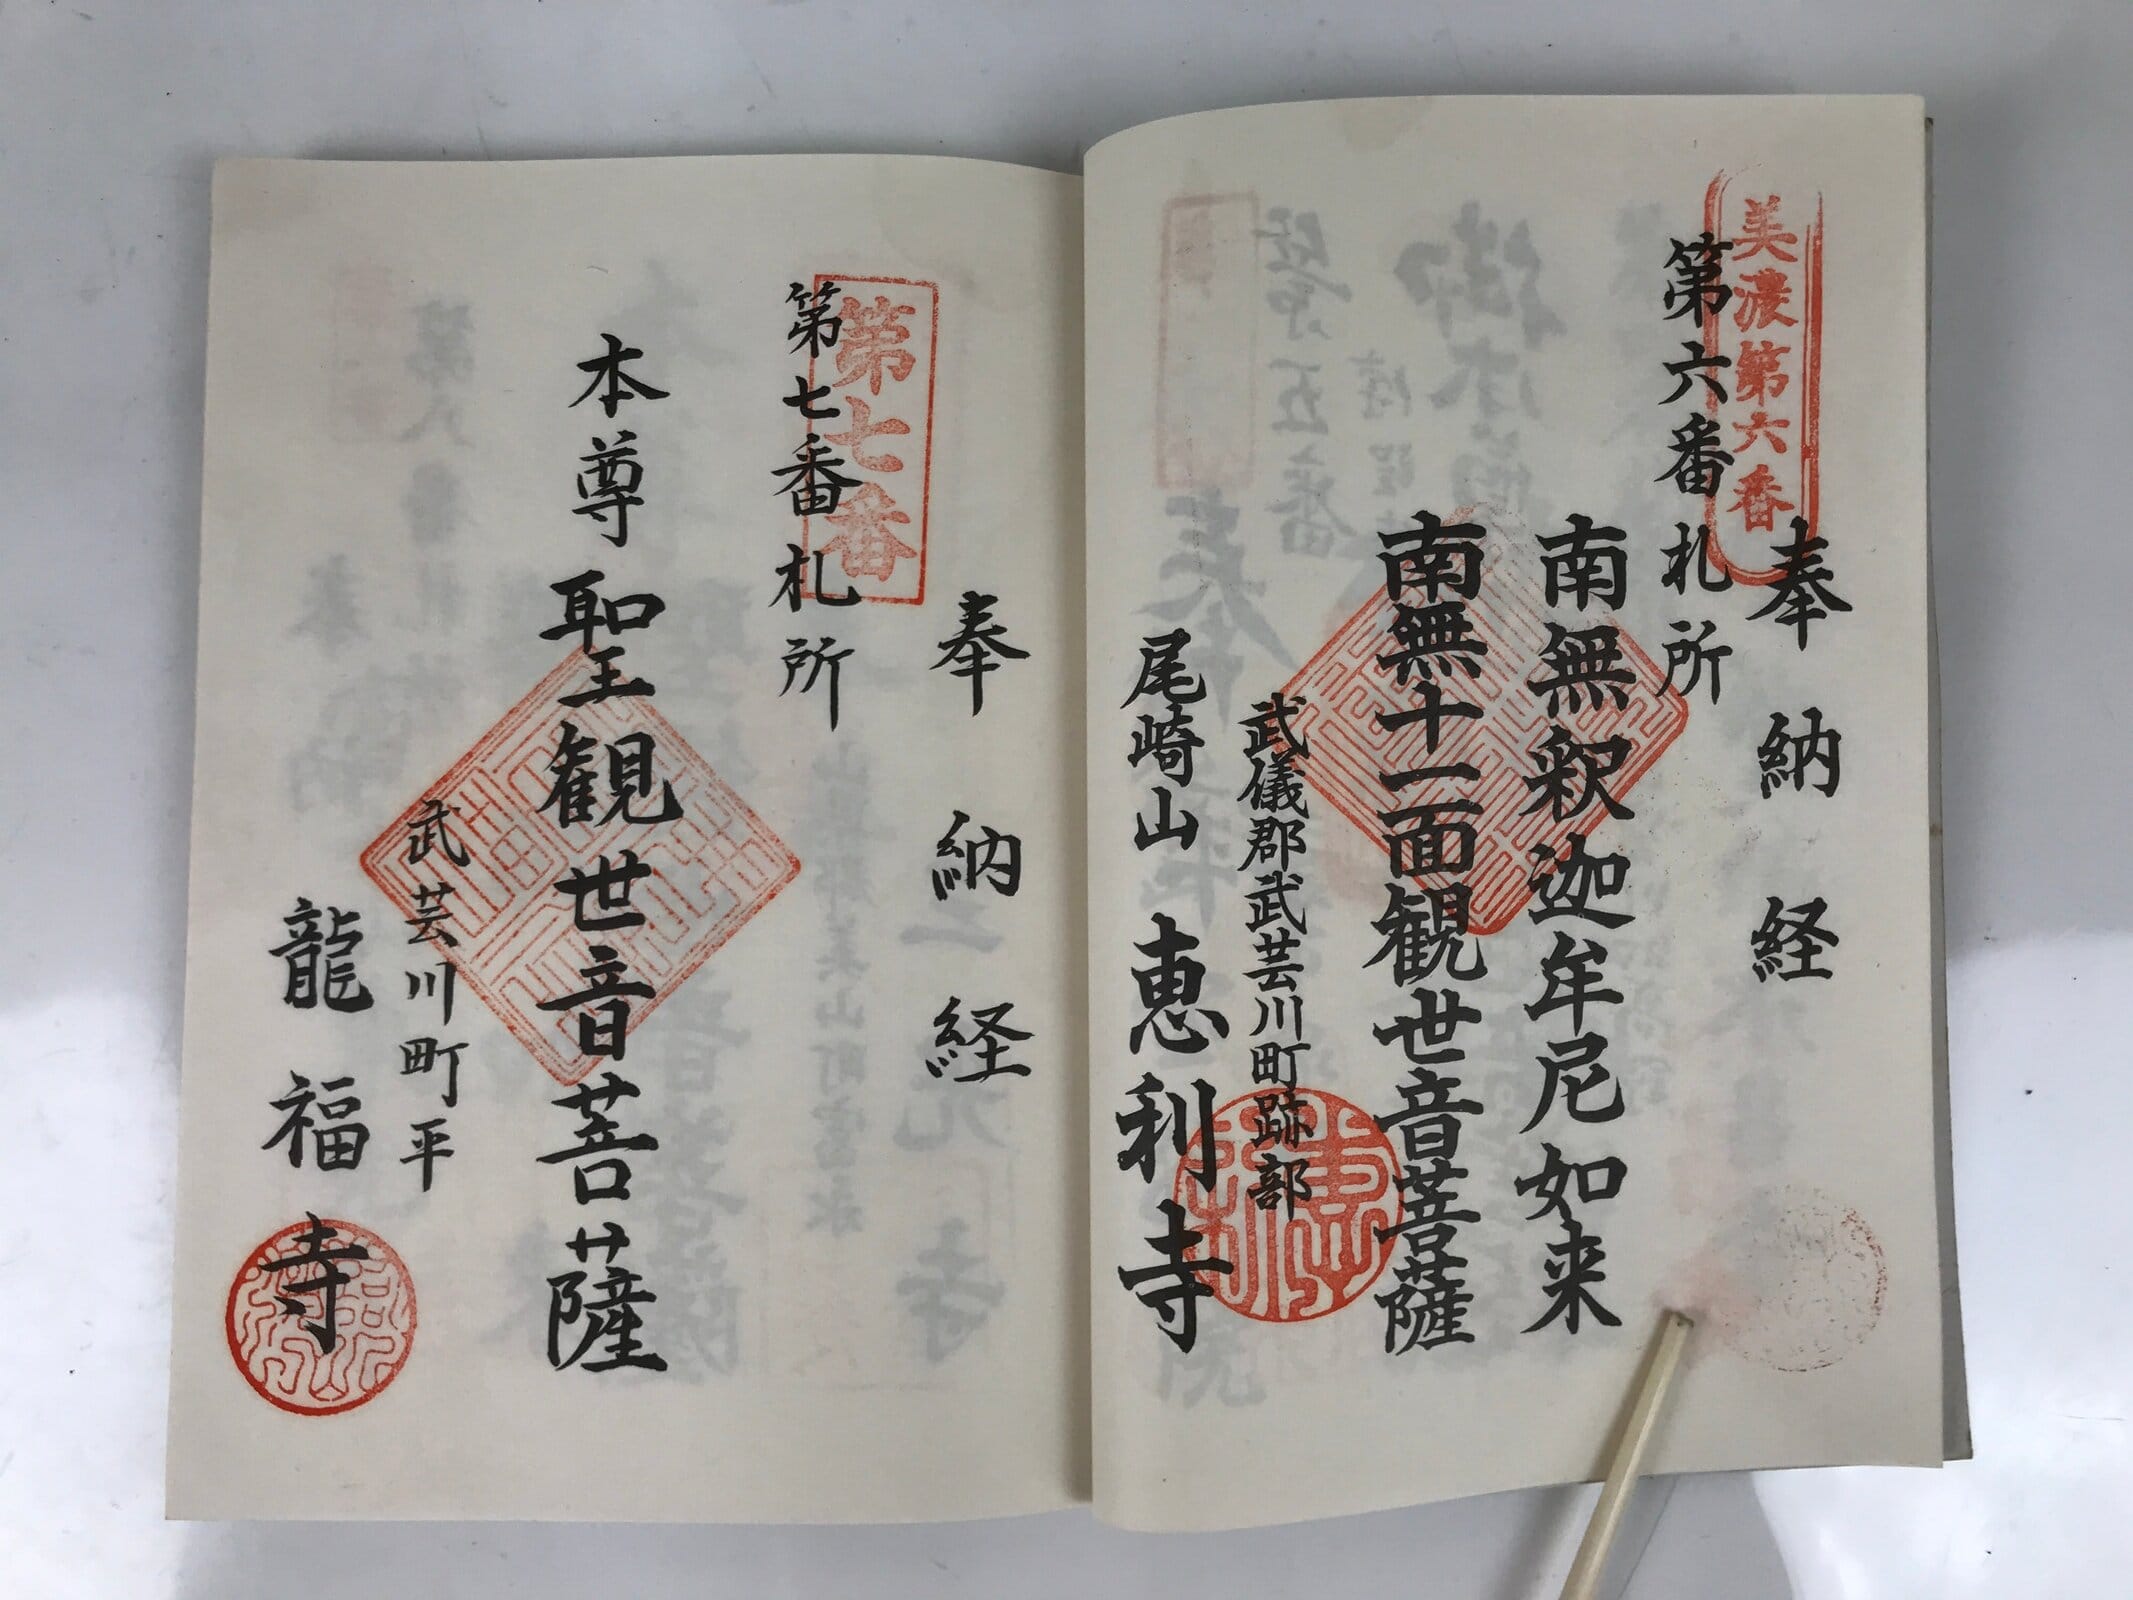 美濃第六番
奉納経
第六番札所
南無釈迦牟尼如来
南無十一面観世音菩薩
武儀郡武芸川町跡部
尾崎山恵利寺
奉納経
第七番
第七番札所
本尊聖観世音菩薩
武芸川町平
龍福寺